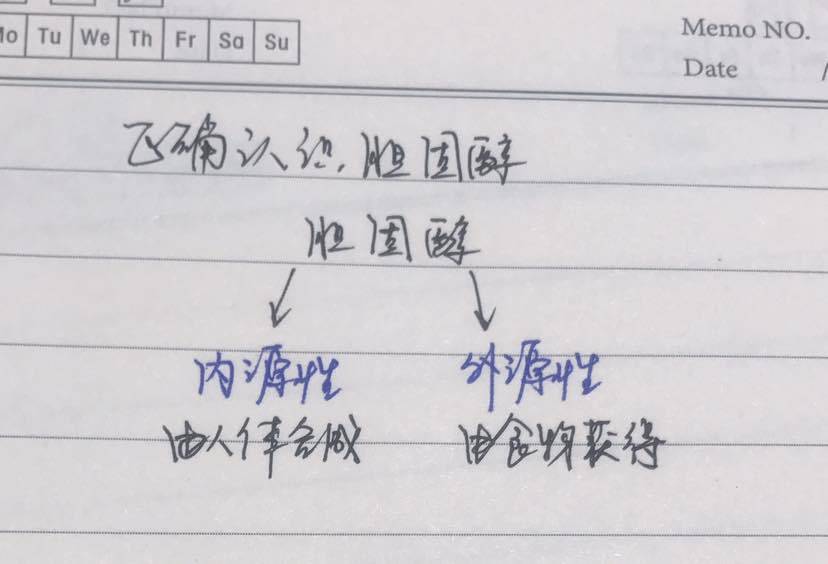 Mo Tu We Th Fr Sa Su
Memo NO.
Date /
正确认识胆固醇
胆固醇
内源性 外源性
由人体合成 由食物获得